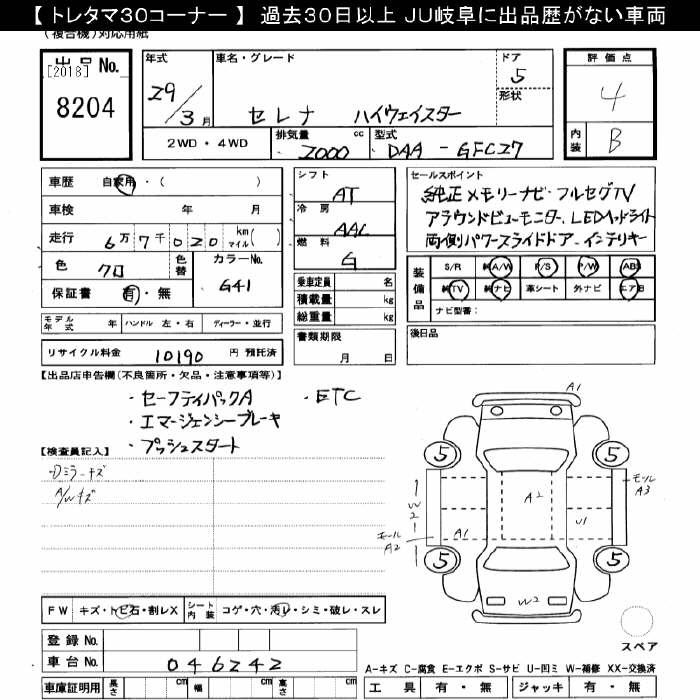 【 トレタマ30コーナー 】 過去30日以上 JU岐阜に出品歴がない車両
(複合機)対応用紙
出品 No.
[2018]
8204
年式
29/3月
車名・グレード
セレナ ハイウェイスター
ドア
5
形状
評価点
4
内装
B
2WD・4WD
排気量 cc
2000
型式
DAA - GFC27
車歴 自家用・( )
車検 年 月
走行 6万7千020 km マイル( )
色 クロ
色替
カラーNo.
G41
保証書 有・無
シフト
AT
冷房
AAC
燃料
G
乗車定員 名
積載量 kg
総重量 kg
書類期限
月 日
セールスポイント
純正メモリーナビ・フルセグTV
アラウンドビューモニター、LEDヘッドライト
両側パワースライドドア、インテリキー
装備品
S/R 純A/W P/S P/W ABS
純TV 純ナビ 革シート 外ナビ エアB
ナビ型番:
後日品
モデル年式 年 ハンドル 左・右 ディーラー・並行
リサイクル料金 10190 円 預託済
【出品店申告欄(不良箇所・欠品・注意事項等)】
・セーフティパックA ・ETC
・エマージェンシーブレーキ
・プッシュスタート
【検査員記入】
・Dミラーキズ
A/Wキズ
A1
5
5
モール
A3
W2
A2
モール
A2
A1
U1
5
5
W2
スペア
FW キズ・トビ石・割レX
シート内装 コゲ・穴・汚レ・シミ・破レ・スレ
登録 No.
車台 No. 046242
車庫証明用 長さ cm 幅 cm 高さ cm
A−キズ C−腐食 E−エクボ S−サビ U−凹ミ W−補修 XX−交換済
工具 有・無 ジャッキ 有・無